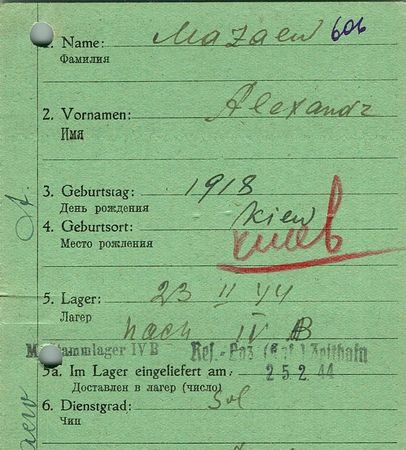 1. Name: Mazaew 606
Фамилия
2. Vornamen: Alexandr
Имя
3. Geburtstag: 1918
День рождения
4. Geburtsort: Kiew
Место рождения Киев
5. Lager: 23 II 44
Лагер nach IV B
M.-Stammlager IV B Res.-Laz. Zeithain
5a. Im Lager eingeliefert am: 25.2.44
Доставлен в лагер (число)
6. Dienstgrad: Sol
Чин